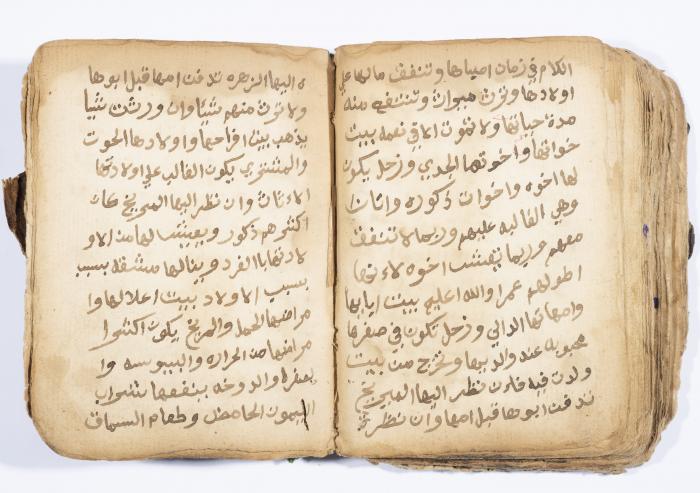 الكلام في زمان اصباها وتنفق مالها علي
اولادها وترث ميراث وتنتفع منه
مدة حياتها ولا تموت الا في نعمه بيت
خواتها واخوتها الجدي وزحل يكون
لها اخوه واخوات ذكوره واناثا
وهي الغالبه عليهم وربما لا تتفق
معهم وربما تعيش اخوه لاءنها
اطولهم عمرا والله اعلم بيت ابايها
وامهاتها الدالي وزحل تكون في صغرها
محبوبه عند والديها وتخرج من بيت
ولدت فيه فاءن نظر اليها المريخ
تدفن ابوها قبل امها وان نظرة
ه اليها الزهره تدفن امها قبل ابوها
ولا ترث منهم شيئا وان ورثت شيا
يذهب بيت افراحها واولادها الحوت
والمشتري يكون الغالب علي اولادها
الاءناث وان نظر اليها المريخ كان
اكثرهم ذكور ويعيش لها من الاو
لادتها با الفرد وينالها مشقه بسبب
بسبب الاولاد بيت اعلالها وا
مراضها الحمل والمريخ يكون اكثر ا
مراضها من الحراره واليبوسه وا
لصفره والدوخه ينفعها شراب
اليمون الحامض وطعام السماق